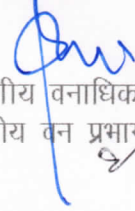 ीय वनाधिक
ीय वन प्रभा